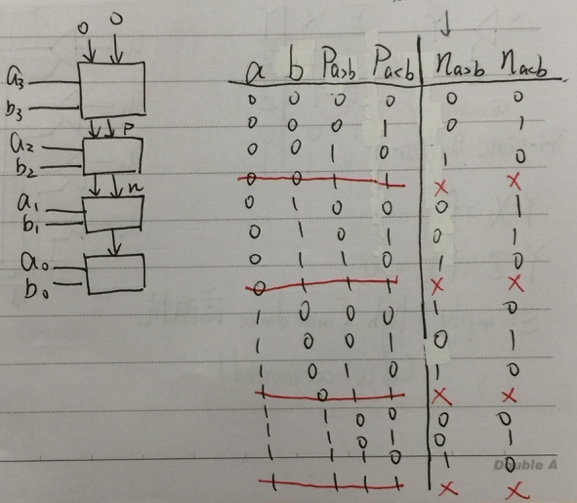 0 0
a3
b3
P
a2
b2
n
a1
b1
a0
b0
a b Pa>b Pa<b na>b na<b
0 0 0 0 0 0
0 0 0 1 0 1
0 0 1 0 1 0
0 0 1 1 x x
0 1 0 0 0 1
0 1 0 1 0 1
0 1 1 0 1 0
0 1 1 1 x x
1 0 0 0 1 0
1 0 0 1 0 1
1 0 1 0 1 0
1 0 1 1 x x
1 1 0 0 0 0
1 1 0 1 0 1
1 1 1 0 1 0
Double A
1 1 1 1 x x